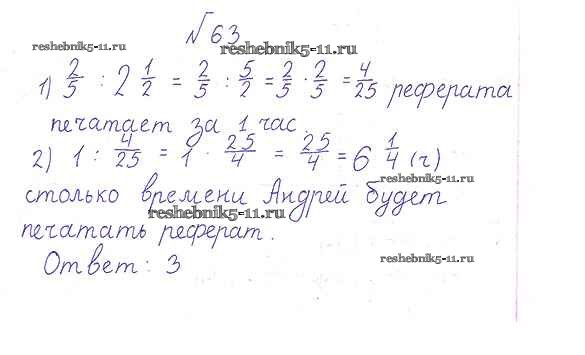 №63
reshebnik5-11.ru reshebnik5-11.ru
1) 2/5 : 2 1/2 = 2/5 : 5/2 = 2/5 · 2/5 = 4/25 реферата
печатает за 1 час.
2) 1 : 4/25 = 1 · 25/4 = 25/4 = 6 1/4 (ч)
reshebnik5-11.ru
столько времени Андрей будет
reshebnik5-11.ru
печатать реферат.
Ответ: 3
reshebnik5-11.ru